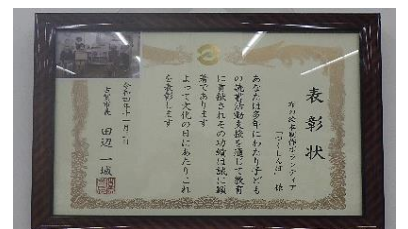 表彰状
布の絵本制作ボランティア
「つくしんぼ」様
あなたは多年にわたり子ども
の読書活動支援を通じて教育
に貢献されその功績は誠に顕
著であります
よって文化の日にあたりこれ
を表彰します
令和四年十一月三日
古賀市長 田辺一城